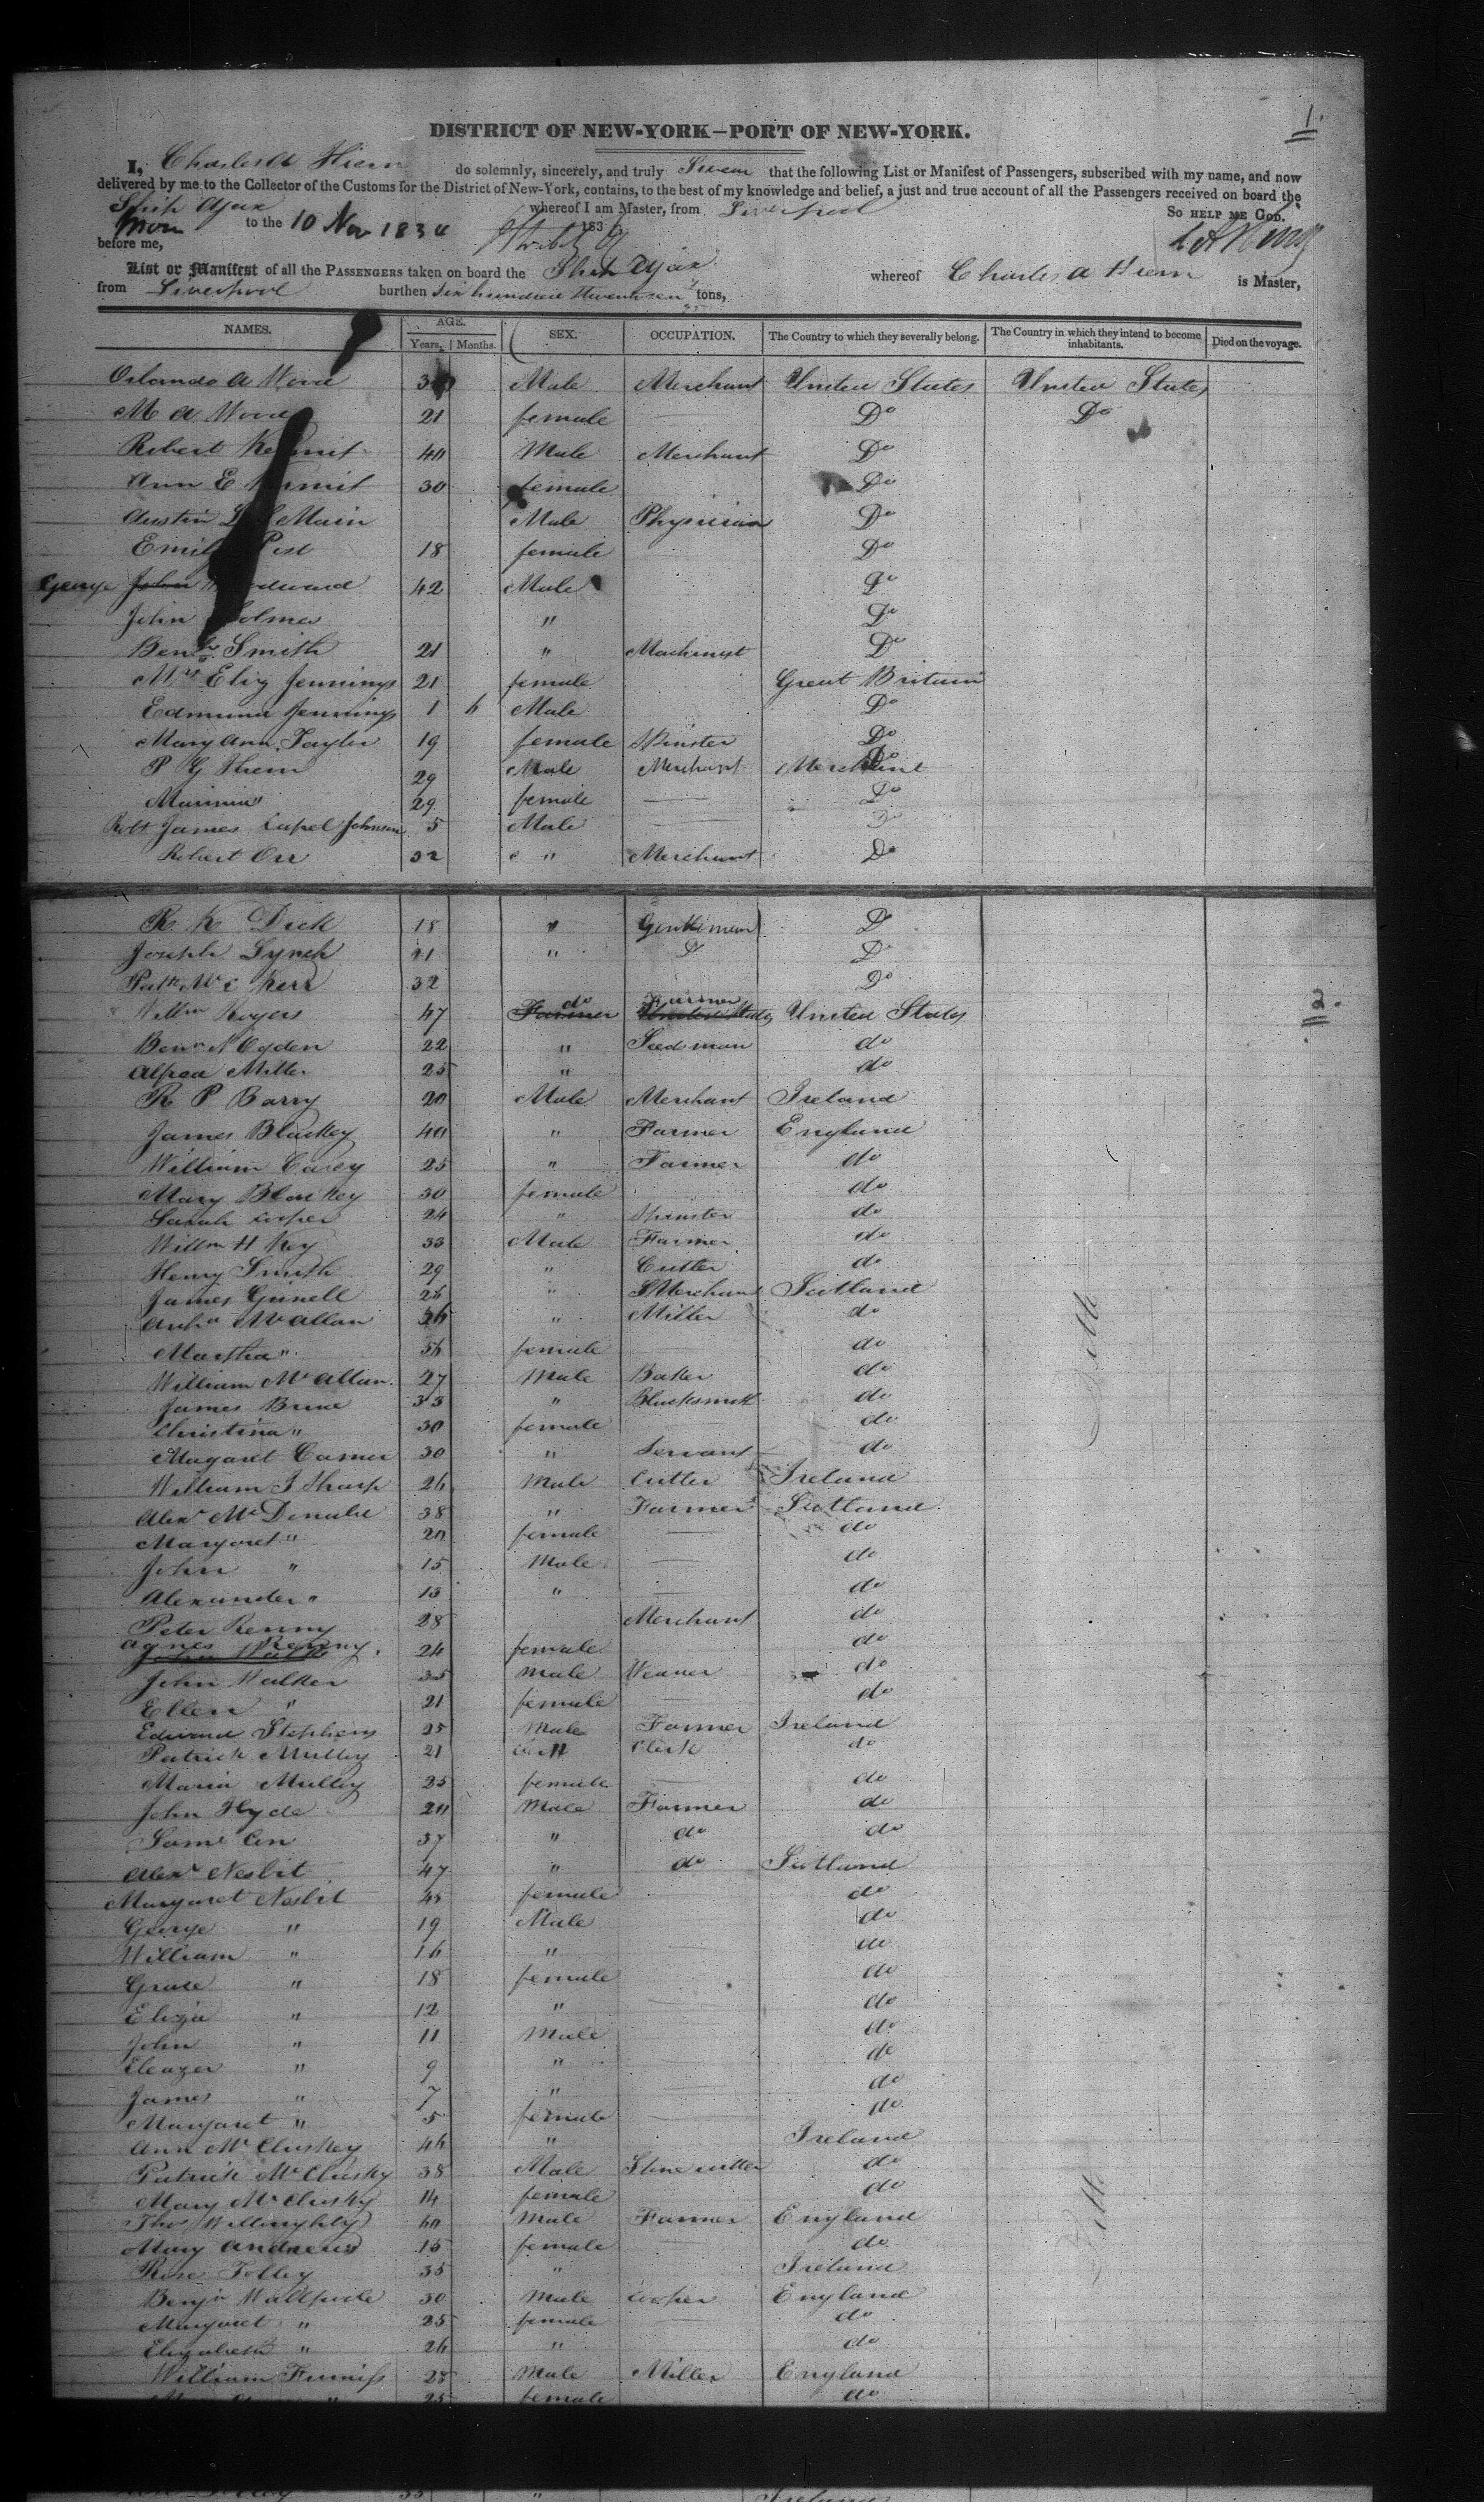 1.
DISTRICT OF NEW-YORK—PORT OF NEW-YORK.
I, Charles A Hiern do solemnly, sincerely, and truly Swear that the following List or Manifest of Passengers, subscribed with my name, and now
delivered by me to the Collector of the Customs for the District of New-York, contains, to the best of my knowledge and belief, a just and true account of all the Passengers received on board the
Ship Ajax whereof I am Master, from Liverpool
So HELP ME GOD.
to the 10 Nov 1834 183
before me,
List or Manifest of all the PASSENGERS taken on board the Ship Ajax whereof Charles A Hiern is Master,
from Liverpool burthen Six hundred tons,
NAMES. AGE. SEX. OCCUPATION. The Country to which they severally belong. The Country in which they intend to become inhabitants. Died on the voyage.
Years. Months.
Orlando A Wood Male Merchant United States United States
M A Wood 21 female Do Do
Robert Kermit 40 Male Merchant Do
Ann E Kermit 30 female Do
Austin Main Male Physician Do
Emily Post 18 female Do
George John Woodward 42 Male Do
John Holmes " Do
Benj Smith 21 " Machinist Do
Mrs Eliz Jennings 21 female Great Britain
Edmund Jennings 1 6 Male Do
Mary Ann Taylor 19 female Spinster Do
P G Hiern 29 Male Merchant Do
29 female Do
Robt James Capel Johnson 5 Male Do
Robert Orr 32 " Merchant Do
R K Dick 18 " Gentleman Do
Joseph Lynch 21 " Do Do
Patk Mc Kerr 32 Do
2.
Willm Rogers 47 Farmer do Farmer United States
Benn N Ogden 22 " Seedman do
Alfred Miller 25 " do
R P Barry 20 Male Merchant Ireland
James Blackey 40 " Farmer England
William Carey 25 " Farmer do
Mary Blackey 30 female do
Sarah Cooper 24 " Spinster do
Willm H Key 33 Male Farmer do
Henry Smith 29 " Cutler do
James Grinell 25 " Merchant Scotland
McAllan " Miller do
Martha " 56 female do
William McAllan 27 Male Baker do
James Bruce 33 " Blacksmith do
Christina " 30 female do
Magaret Comer 30 " Servant do
William J Sharp 26 Male Cutler Ireland
Alexr McDonald 38 " Farmer Scotland
Margaret " 20 female do
John " 15 Male do
Alexander " 13 " do
Peter Renny 28 Merchant do
Agnes Renny 24 female do
John Walker 35 Male Weaver do
Ellen " 21 female do
Edward Stephens 25 Male Farmer Ireland
Patrick Mulley 21 Clerk do
Maria Mulley 25 female do
John Hyde 20 Male Farmer do
37 " do do
Alexr Nesbit 47 " do Scotland
Margaret Nesbit 45 female do
George " 19 Male do
William " 16 " do
Grace " 18 female do
Eliza " 12 " do
John " 11 Male do
Eleazer " 9 " do
James " 7 " do
Margaret " 5 female do
Ann McCluskey 46 " Ireland
Patrick McClusky 38 Male Stone cutter do
Mary McClusky 14 female do
Thos Willoughby 60 Male Farmer England
Mary Andrews 15 female do
Rose Tolley 35 " Ireland
Benjn Wallpole 30 Male Cooper England
Margaret " 25 female do
Elizabeth " 26 " do
William Furniss 28 Male Miller England
25 female do
35 " Ireland